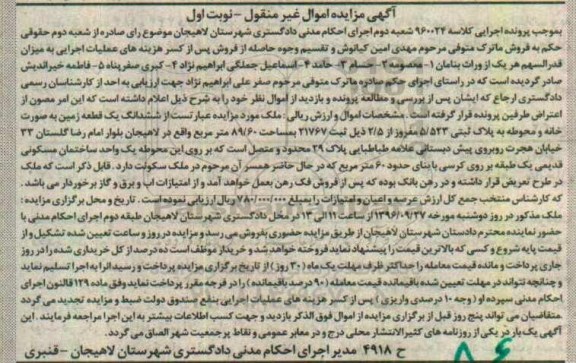 آگهی مزایده اموال غیر منقول - نوبت اول
بموجب پرونده اجرایی کلاسه ۹۶۰۰۲۴ شعبه دوم اجرای احکام مدنی دادگستری شهرستان لاهیجان موضوع رای صادره از شعبه دوم حقوقی
حکم به فروش ماترک متوفی مرحوم مهدی امین کیانوش و تقسیم وجوه حاصله از فروش پس از کسر هزینه های عملیات اجرایی به میزان
قدرالسهم هر یک از وراث بنامان ۱- معصومه ۲- حسام ۳- حامد ۴- اسماعیل جملگی ابراهیم نژاد ۴- کبری صفرپناه ۵- فاطمه خیراندیش
صادر گردیده است که در راستای اجرای حکم صادره ماترک متوفی مرحوم صفر علی ابراهیم نژاد جهت ارزیابی به احد از کارشناسان رسمی
دادگستری ارجاع که ایشان پس از بررسی و مطالعه پرونده و بازدید از اموال نظر خود را به شرح ذیل اعلام داشته است که این امر مصون از
اعتراض طرفین پرونده قرار گرفته است. مشخصات اموال و ارزش ریالی: ملک مورد مزایده عبارتست از ششدانگ یک قطعه زمین به صورت
خانه و محوطه به پلاک ثبتی ۵/۵۲۳ مفروز از ۲/۵ ذیل ثبت ۲۱۷۶۷ بمساحت ۸۹/۶۰ متر مربع واقع در لاهیجان بلوار امام رضا گلستان ۳۳
خیابان هجرت روبروی پیش دبستانی علامه طباطبایی پلاک ۲۹ محدود و متصل است که بر روی این محوطه یک واحد ساختمان مسکونی
قدیمی یک طبقه بر روی کرسی با بنای حدود ۶۰ متر مربع که در حال حاضر همسر آن مرحوم در ملک سکونت دارد. قابل ذکر است که ملک
در طرح تعریض قرار داشته و در رهن بانک بوده که پس از فروش فک رهن بعمل خواهد آمد و از امتیازات اب و برق و گاز برخوردار می باشد.
که کارشناس منتخب جمع کل ارزش عرصه و اعیان و امتیازات را بمبلغ ۷۸۰/۰۰۰/۰۰۰ ریال ارزیابی نموده است. تاریخ و محل برگزاری مزایده:
ملک مذکور در روز دوشنبه مورخه ۱۳۹۶/۰۹/۲۷ از ساعت ۱۱ الی ۱۳ در محل دادگستری شهرستان لاهیجان طبقه دوم اجرای احکام مدنی با
حضور نماینده محترم دادستان شهرستان لاهیجان از طریق مزایده حضوری بفروش می رسد و مزایده در روز و ساعت تعیین شده تشکیل و از
قیمت پایه شروع و کسی که بالاترین قیمت را پیشنهاد نماید فروخته خواهد شد و خریدار موظف است ده درصد از کل خریداری شده را در روز
جاری پرداخت و مانده قیمت معامله را حداکثر ظرف مهلت یک ماه (۳۰ روز) از تاریخ برگزاری مزایده پرداخت و رسید انرا به اجرا تسلیم نماید
و چنانچه نتواند در مهلت تعیین شده باقیمانده قیمت معامله (۹۰ درصد باقیمانده) را در فرجه مقرر پرداخت نماید وفق ماده ۱۲۹ قانون اجرای
احکام مدنی سپرده او (وجه ۱۰ درصدی واریزی) پس از کسر هزینه های عملیات اجرایی بنفع صندوق دولت ضبط و مزایده تجدید می گردد
متقاضیان می توانند پنج روز قبل از برگزاری مزایده از اموال فوق الذکر بازدید و جهت کسب اطلاعات بیشتر به این اجرا مراجعه فرمایند. این
آگهی یک بار در یکی از روزنامه های کثیرالانتشار محلی درج و در معابر عمومی و نقاط پرجمعیت شهر الصاق می گردد.
ح ۴۹۱۸ مدیر اجرای احکام مدنی دادگستری شهرستان لاهیجان - قنبری
۸۶